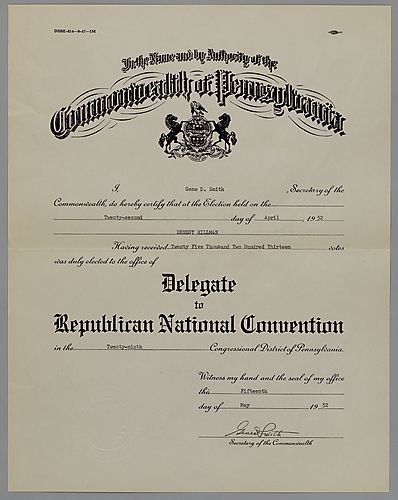 DSBE-414—9-47—1M
In the Name and by Authority of the
Commonwealth of Pennsylvania.
I, Gene D. Smith, Secretary of the
Commonwealth, do hereby certify that at the Election held on the
Twenty-second day of April, 1952
ERNEST HILLMAN
Having received Twenty Five Thousand Two Hundred Thirteen votes
was duly elected to the office of
Delegate
to
Republican National Convention
in the Twenty-ninth Congressional District of Pennsylvania.
Witness my hand and the seal of my office
this Fifteenth
day of May 1952
Gene D. Smith
Secretary of the Commonwealth